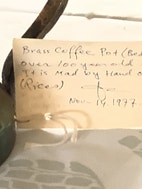 Brass Coffee Pot (Bed
over 100 year old
It is Mad by Hand o
(Rices)
Nov. 14, 1977